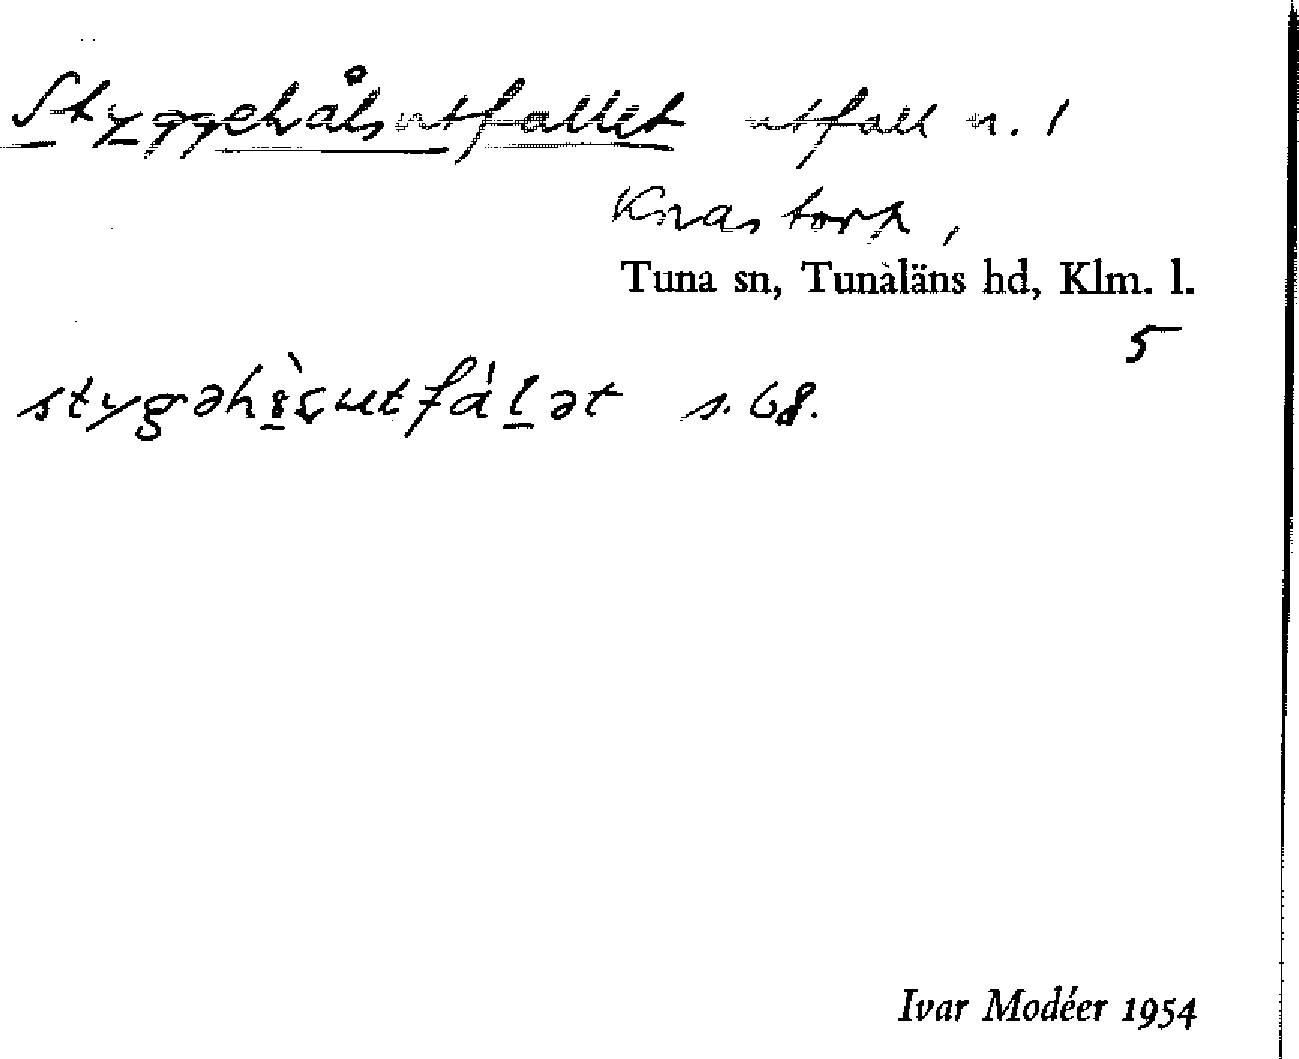 Styggehålsutfallet utfall n. /
Knastorp,
Tuna sn, Tunaläns hd, Klm. l.
5
s. 68.
Ivar Modéer 1954